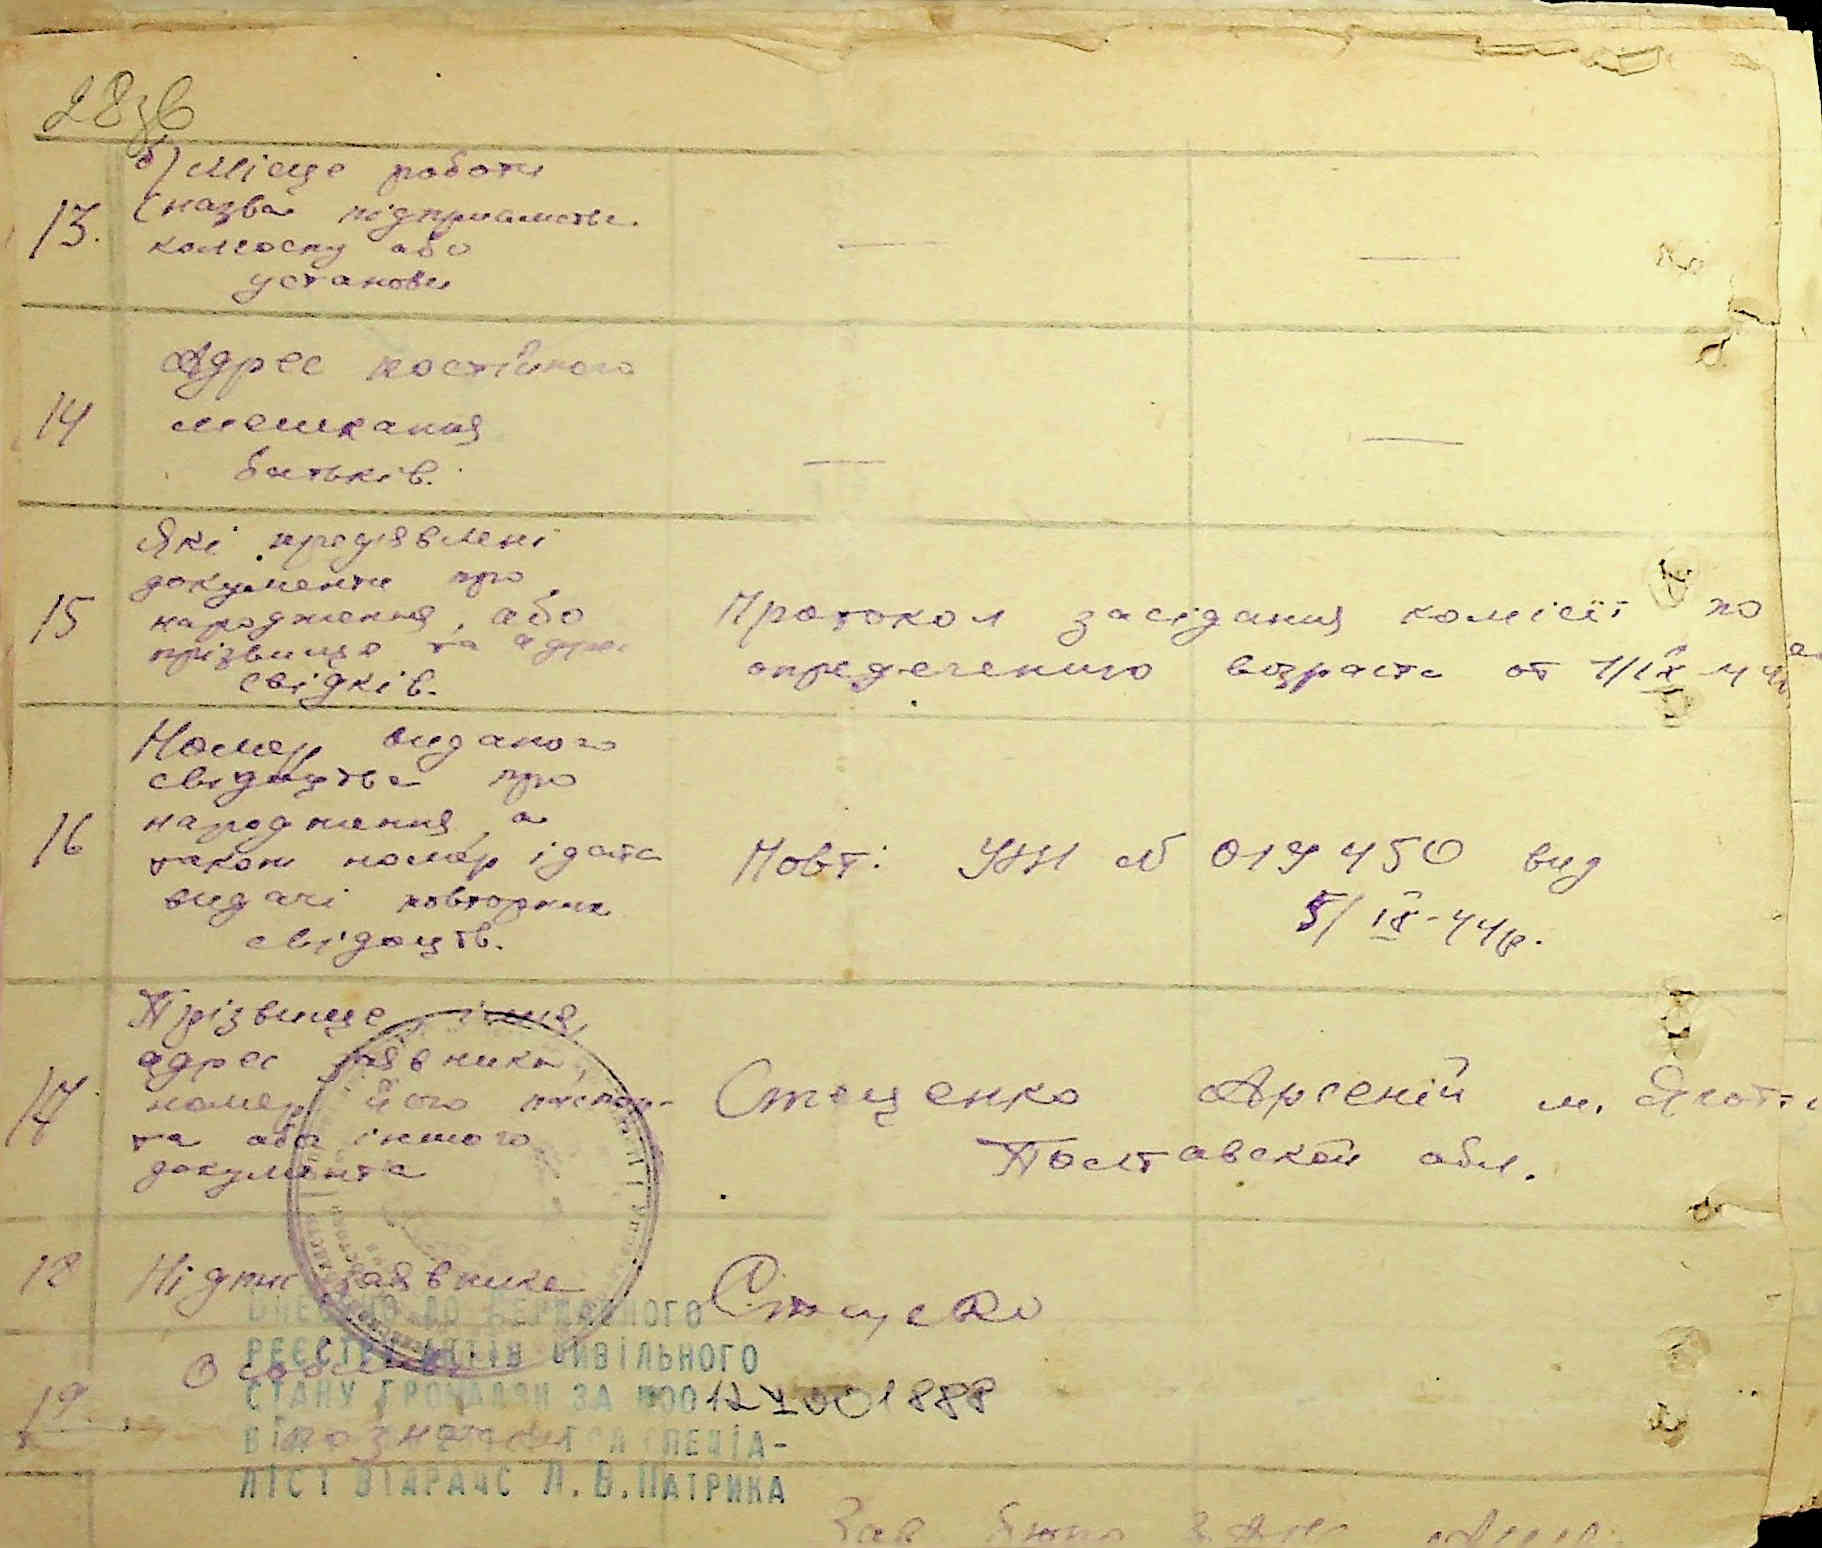 28зв
13. б) Місце роботи
(назва підприємства
колгоспу або
установи
14 Адрес постійного
мешкання
батьків.
15 Які предявлені
документи про
народження, або
прізвище та адрес
свідків.
Протокол засідання комісії по
определению возраста от 1/IX-44
16 Номер виданого
свідоцтва про
народження, а
також номер і дата
видачі повторних
свідоцтв.
Повт: УЖИ № 019450 вид
5/IX-44р.
17 Прізвище, імя,
адрес заявника,
номер його паспор-
та або іншого
документа
Стеценко Арсеній м. Яготи
Полтавской обл.
18 Підпис заявника
19. Особливі
познатки
ВНЕСЕНО ДО ДЕРЖАВНОГО
РЕЄСТРУ АКТІВ ЦИВІЛЬНОГО
СТАНУ ГРОМАДЯН ЗА №00121001888
СПЕЦІА-
ЛІСТ ВДРАЦС Л.В.ПАТРИКА
Зав бюро ЗАГС